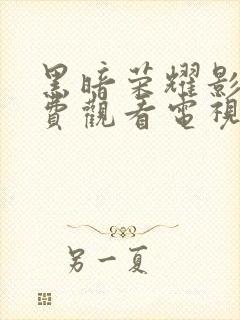 黑暗荣耀影
費觀看電視
另一夏